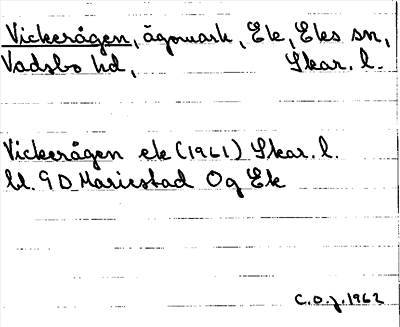 Vickerågen, ägomark, Ek, Eks sn,
Vadsbo hd, Skar. l.
Vickerågen ek (1961) Skar. l.
bl. 9 D Mariestad Og Ek
C.O.J. 1962